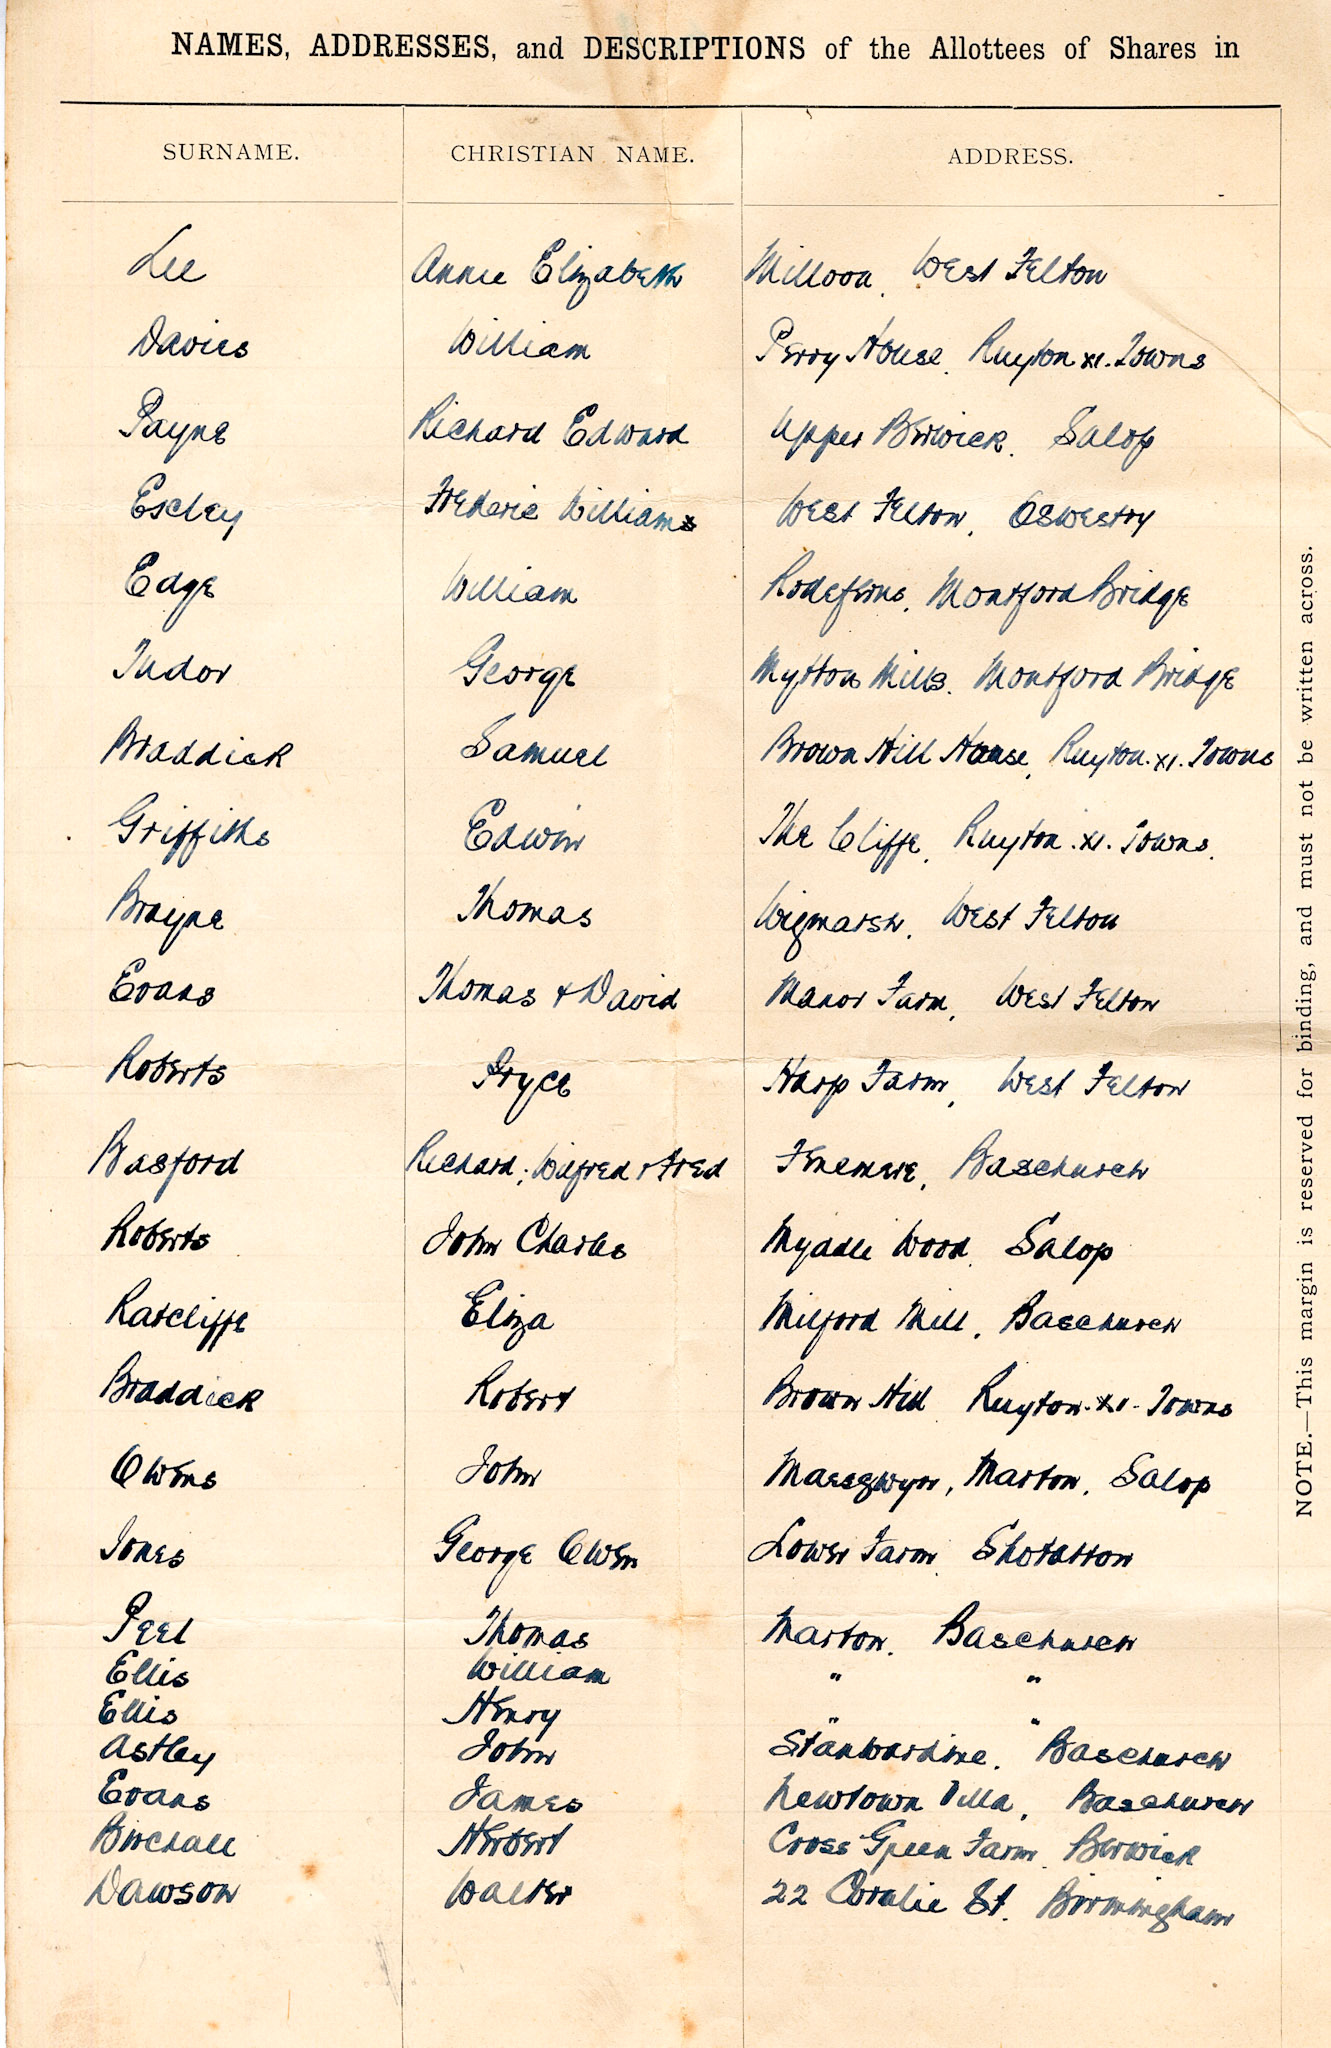 NAMES, ADDRESSES, and DESCRIPTIONS of the Allottees of Shares in
SURNAME. CHRISTIAN NAME. ADDRESS.
Lee Annie Elizabeth Millooa, West Felton
Davies William Perry House, Ruyton XI. Towns
Payne Richard Edward Upper Berwick. Salop
Escley Frederic Williams West Felton, Oswestry
Edge William Rodeferns, Montford Bridge
Tudor George Mytton Mills. Montford Bridge
Braddick Samuel Brown Hill House, Ruyton. XI. Towns
Griffiths Edwin The Cliffe, Ruyton. XI. Towns.
Brayne Thomas Wigmarsh, West Felton
Evans Thomas & David Manor Farm, West Felton
Roberts Pryce Harp Farm, West Felton
Basford Richard; Wilfred & Fred Fenemere, Baschurch
Roberts John Charles Myddle Wood. Salop
Ratcliffe Eliza Milford Mill, Baschurch
Braddick Robert Brown Hill Ruyton. XI. Towns
Owens John Maesgwyn, Marton, Salop
Jones George Owen Lower Farm Shotatton
Peel Thomas Marton. Baschurch
Ellis William " "
Ellis Henry " "
Astley John Stanwardine. Baschurch
Evans James Newtown Villa, Baschurch
Birchall Herbert Cross Green Farm. Berwick
Dawson Walter 22 Coralie St. Birmingham
NOTE.—This margin is reserved for binding, and must not be written across.